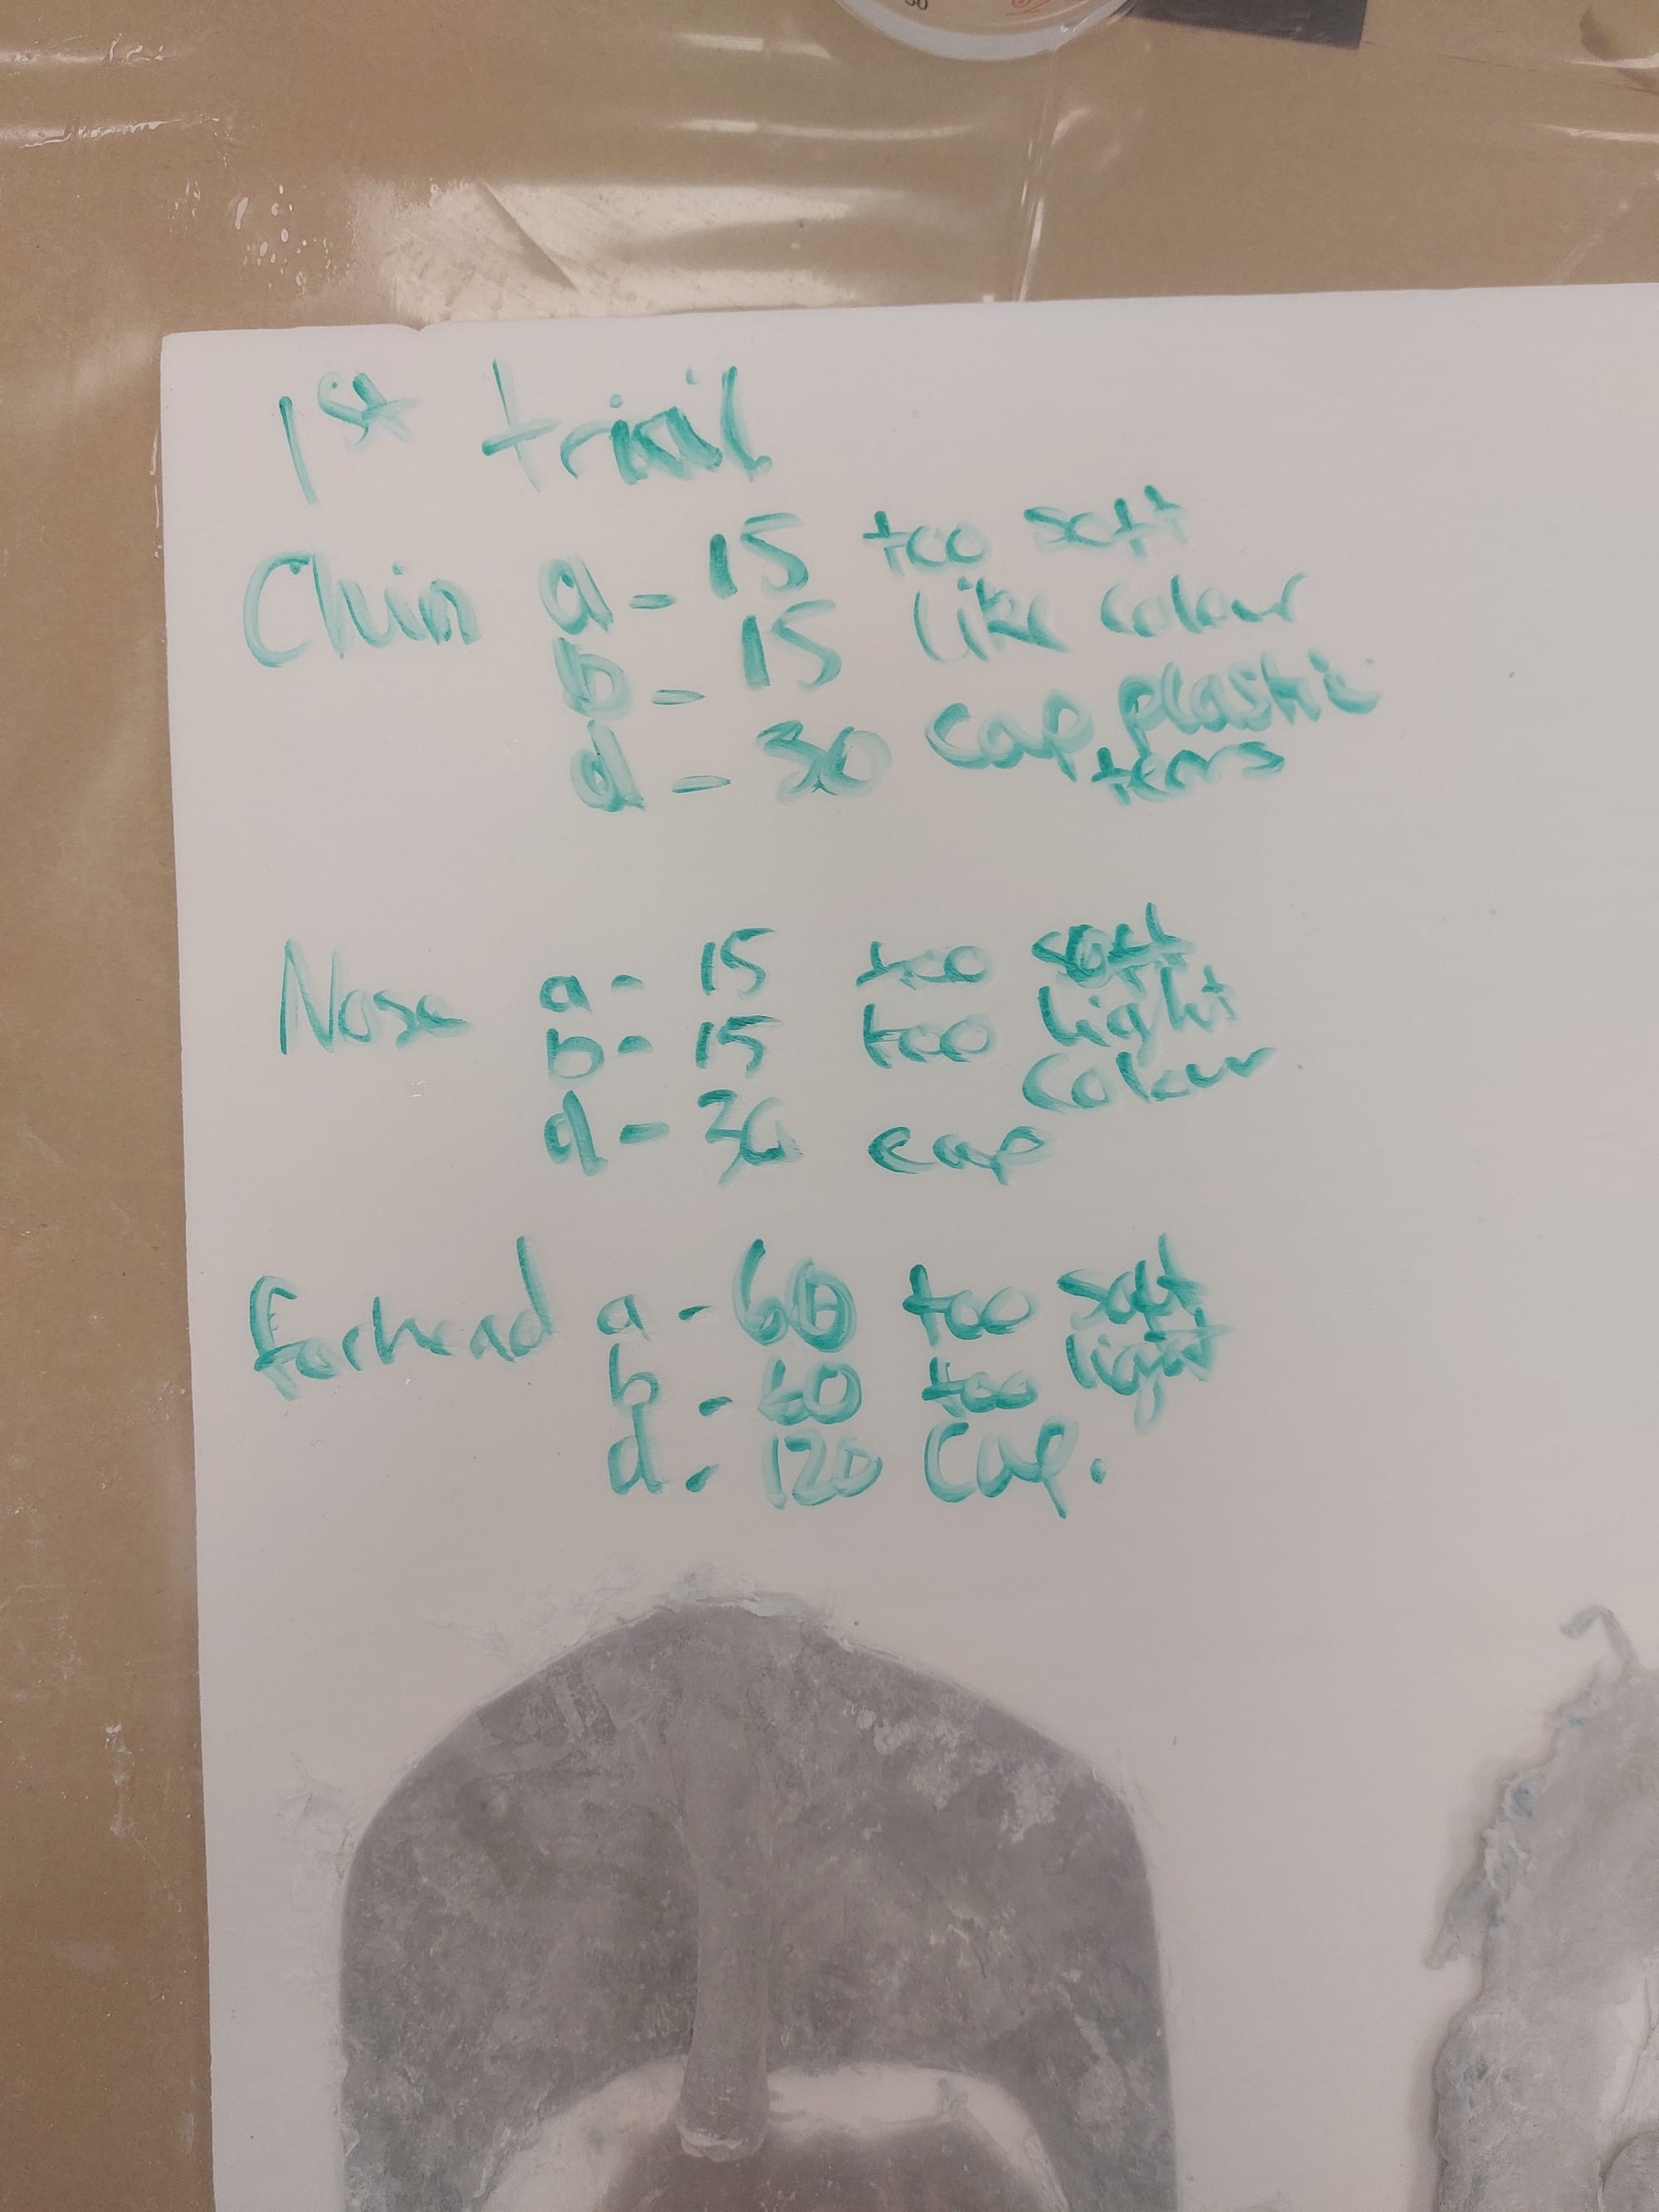 1st trial
Chin a - 15 too soft
b - 15 like colour
d - 30 cap plastic
tears
Nose a - 15 too soft
b - 15 too light
colour
d - 30 cap
forhead a - 60 too soft
b - 60 too light
d - 120 Cap.